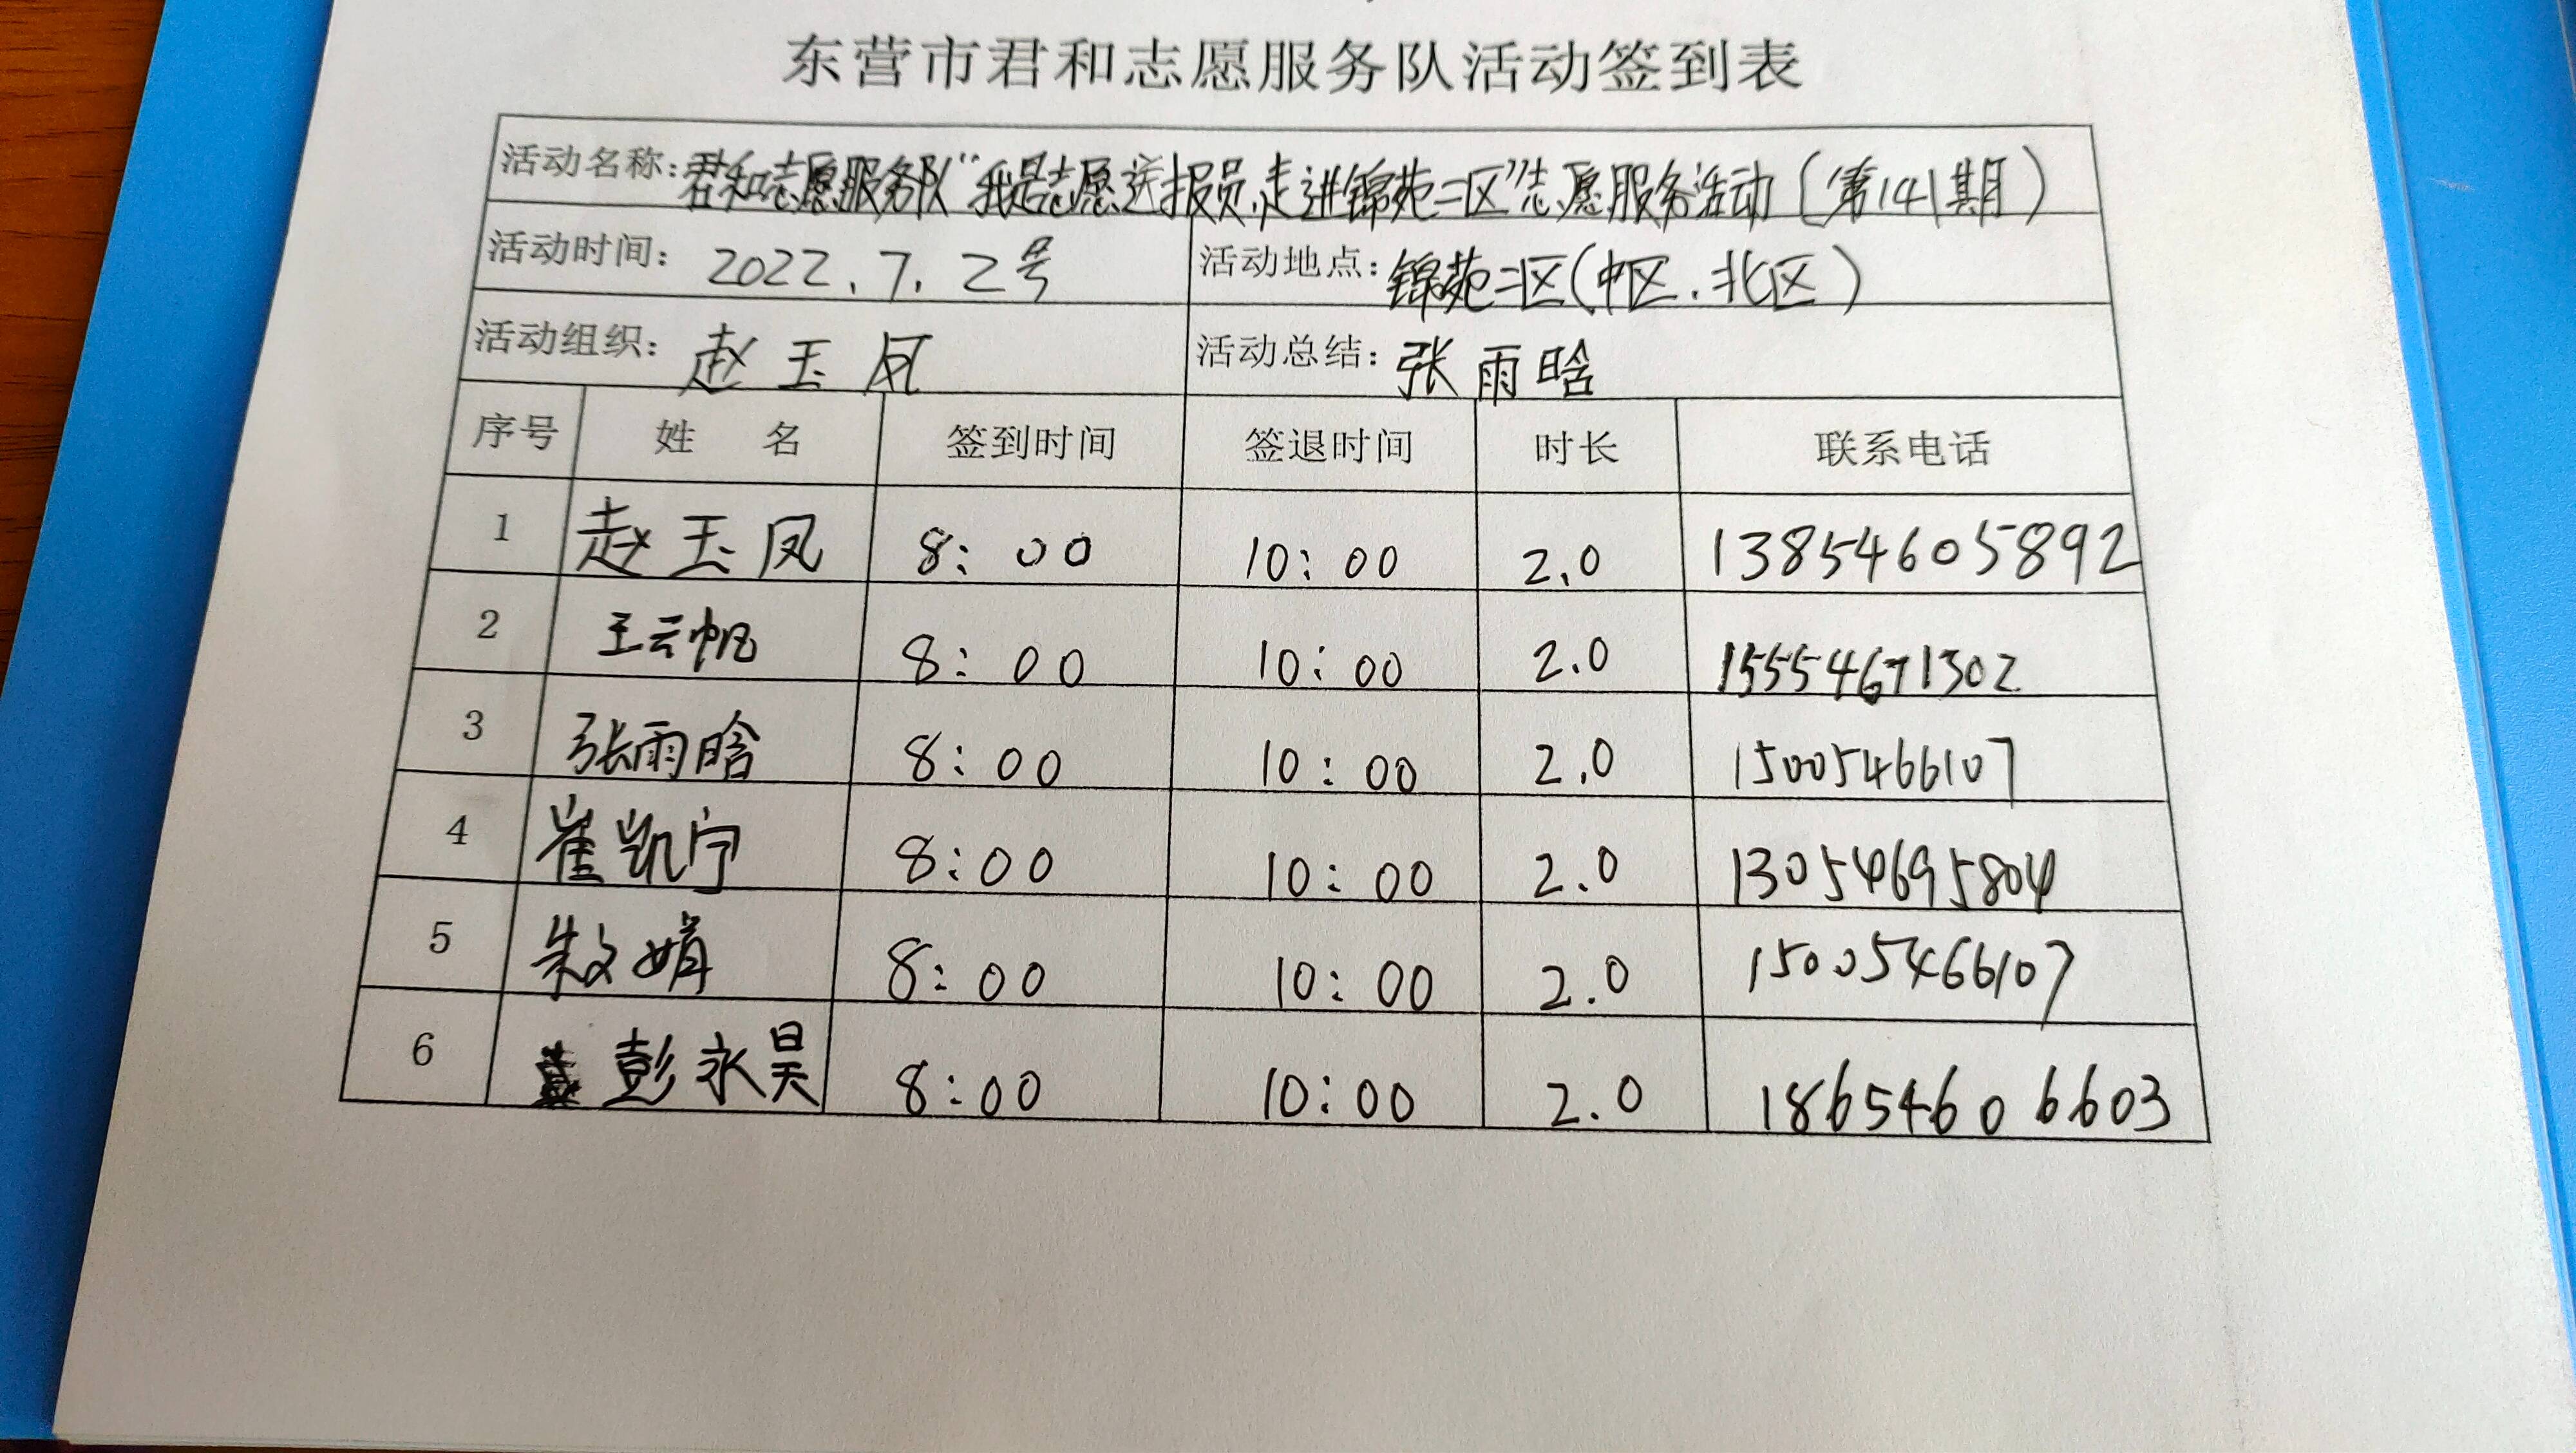 东营市君和志愿服务队活动签到表
活动名称：君和志愿服务队“我是志愿送报员,走进锦苑二区”志愿服务活动（第141期）
活动时间： 2022.7.2号 活动地点：锦苑二区(中区.北区)
活动组织： 赵玉凤 活动总结：张雨晗
序号 姓 名 签到时间 签退时间 时长 联系电话
1 赵玉凤 8:00 10:00 2.0 13854605892
2 王云帆 8:00 10:00 2.0 15554671302
3 张雨晗 8:00 10:00 2.0 15005466107
4 崔凯宁 8:00 10:00 2.0 13054695804
5 朱文娟 8:00 10:00 2.0 15005466107
6 彭永昊 8:00 10:00 2.0 18654606603